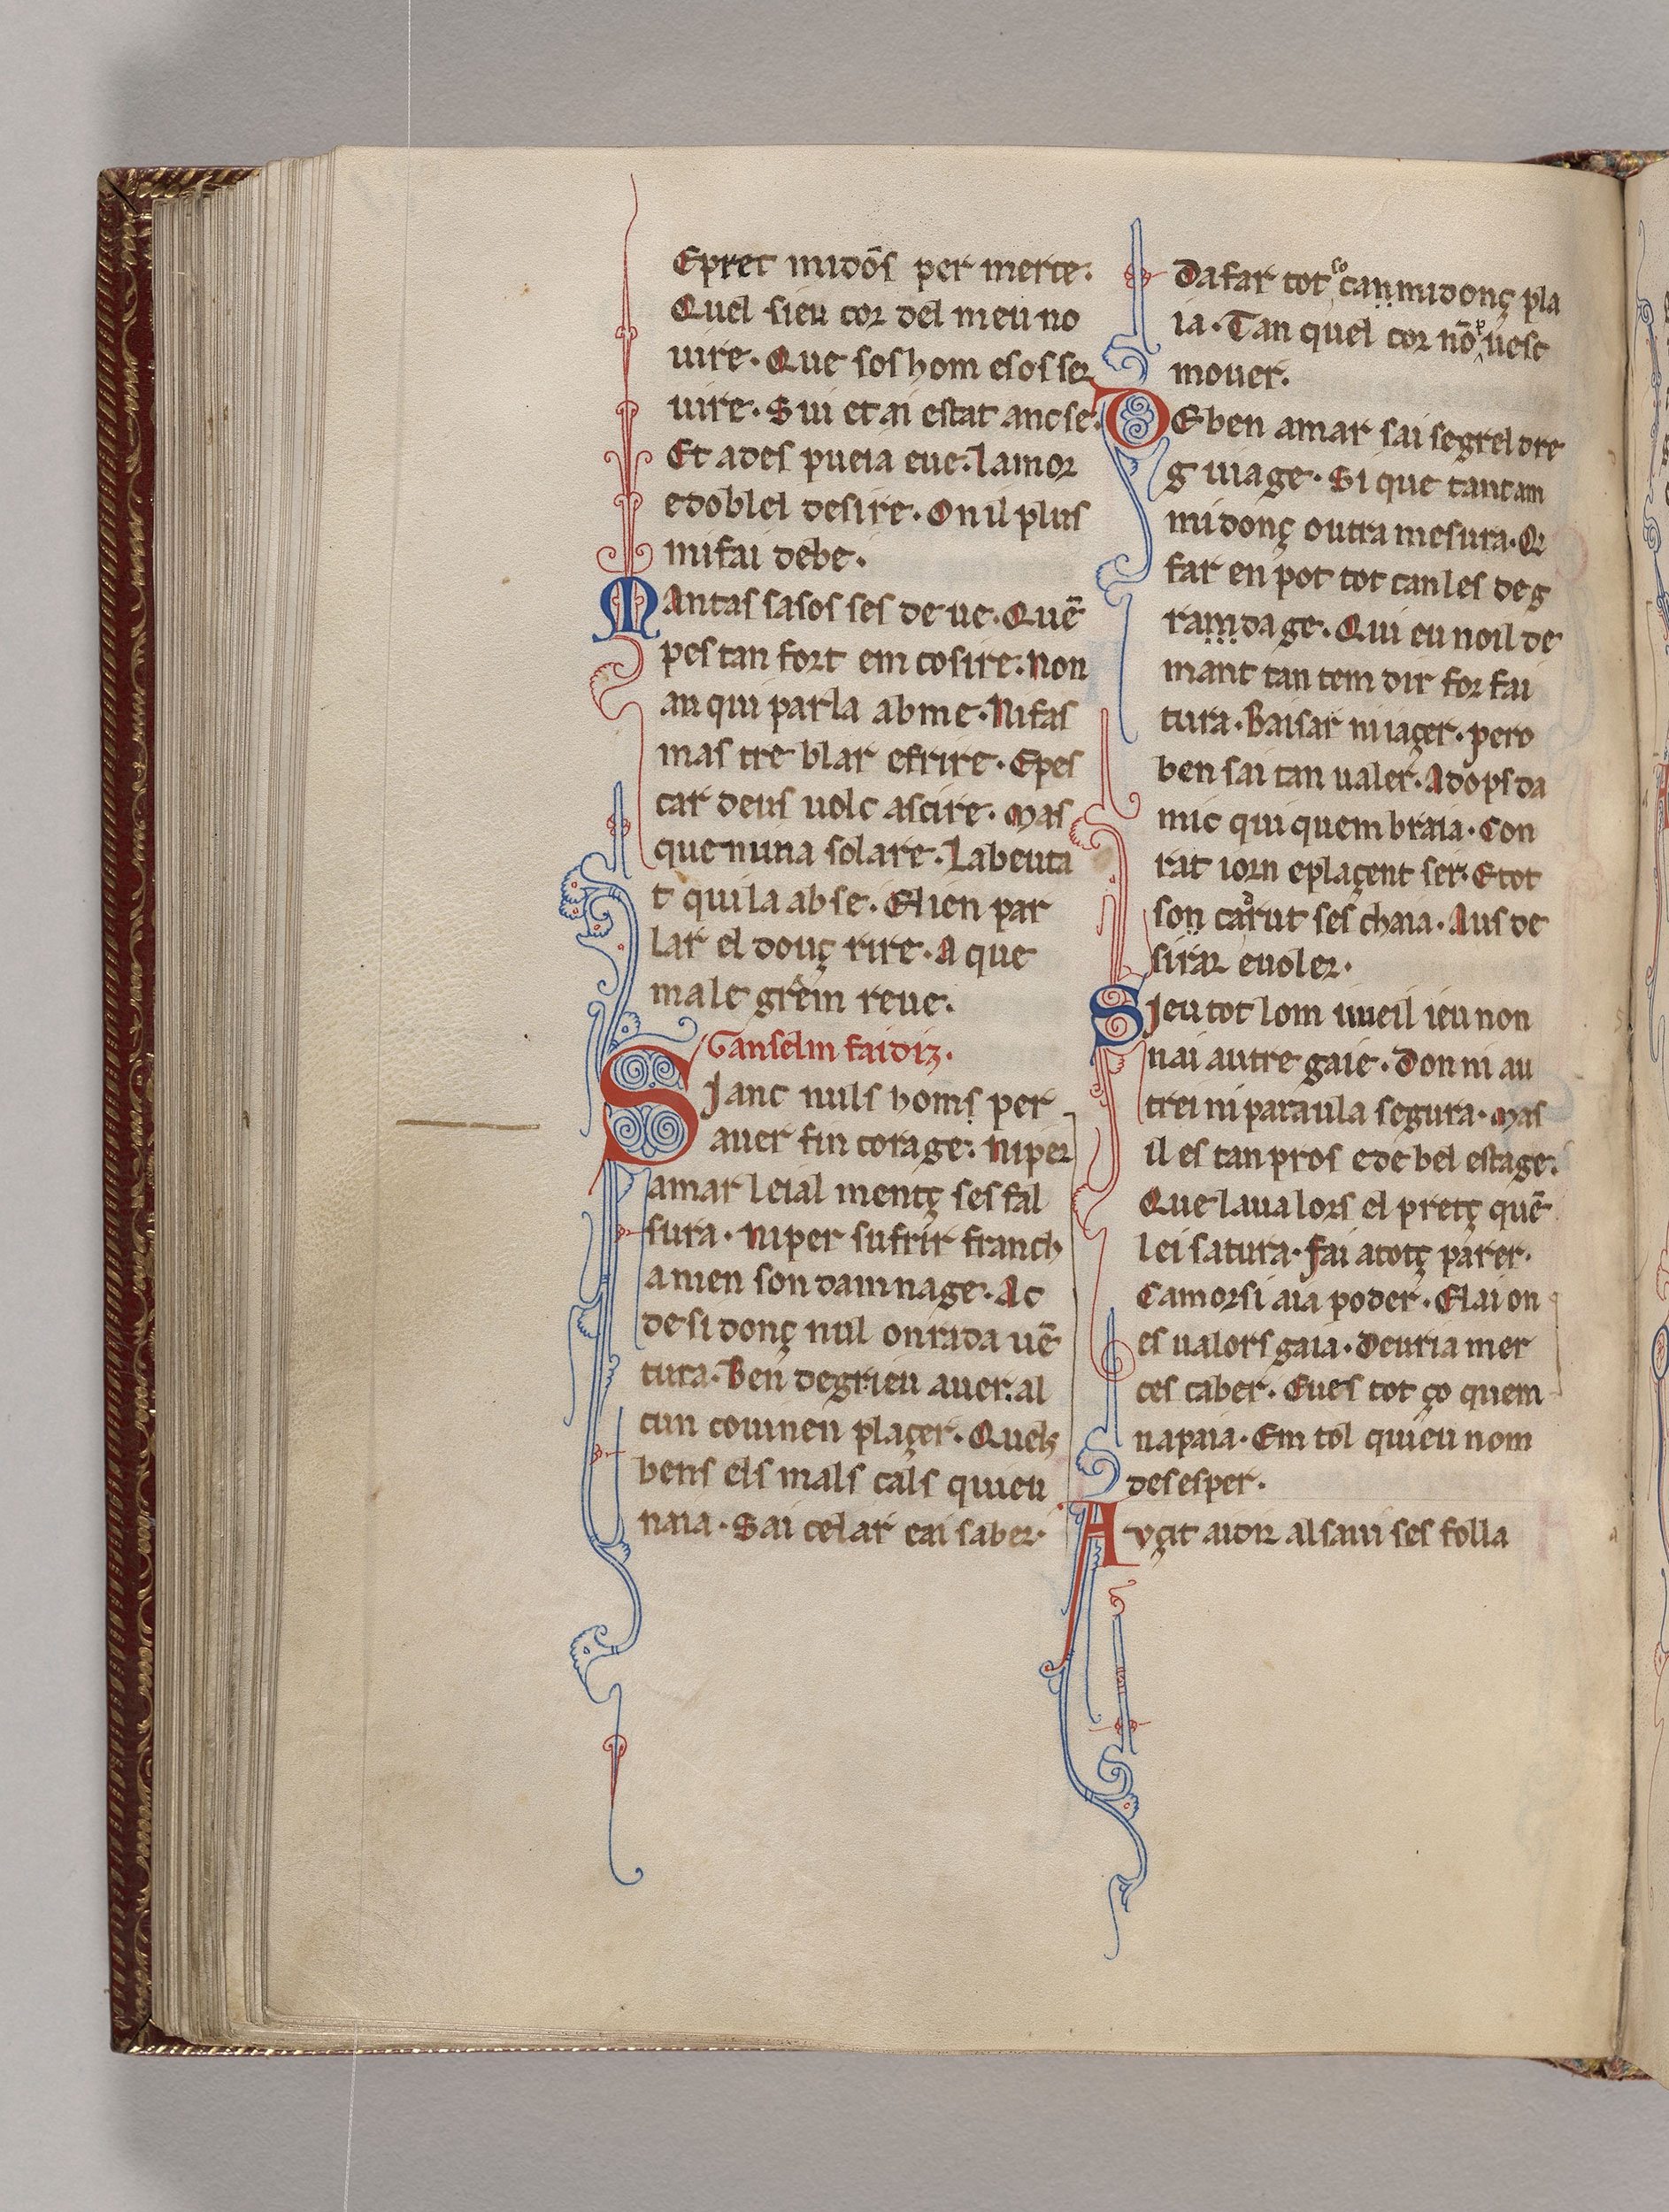 Epret midōs per merce.
Quel sieu cor del meu no
uire. Que soshom esosser
uire. Sui et ai estat ancse.
Et ades pueia eue. lamor
edoblel desire. Onil plus
mifai debe.
Mantas sasos ses de ue. Quē
pes tan fort em cosire. non
au qui parla abme. Nifas
mas tre blar efrire. Epes
car deus uolc ascire. mas
que nuna solare. Labeuta
t quila abse. Elien par
lar el douç rire. A que
malegrem reue.
Ganselm faidiz.
Sianc nuls homs per
auer fin corage. niper
amar leial mentç ses fal
sura. niper sufrir franch
amen son dampnage. Ac
desi donç nul onrada uē
tura. Ben degrieu auer. al
cun couinen plaçer. Quels
bens els mals cals quieu
naia. Sai celar eai saber.
Dafar tot so canmidonç pla
ia. Tan quel cor nō p uesc
mouer.
E ben amar sai segrel dre
g uiage. Si que tantam
midonç outra mesura. Q
far en pot tot canles deg
ramdage. Qui eu noil de
mant tan tem dir for fai
tura. Baisar ni iaçer. pero
ben sai tan ualer. Adops da
mic qui quem braia. Con
rat iorn eplaçent ser. Etot
son carut ses chaia. Aus de
sirar euoler.
Sieu tot lom uueil ieu non
nai autre gaie. Don ni au
trei ni paraula segura. mas
il es tan pros ede bel estage.
Que laualors el pretç quē
lei satura. fai atotç parer.
Camorsi aia poder. Elai on
es ualors gaia. Deuria mer
ces caber. Eues tot ço quem
napaia. Em tol quieu nom
desesper.
Auçit aidir alsaui ses folla